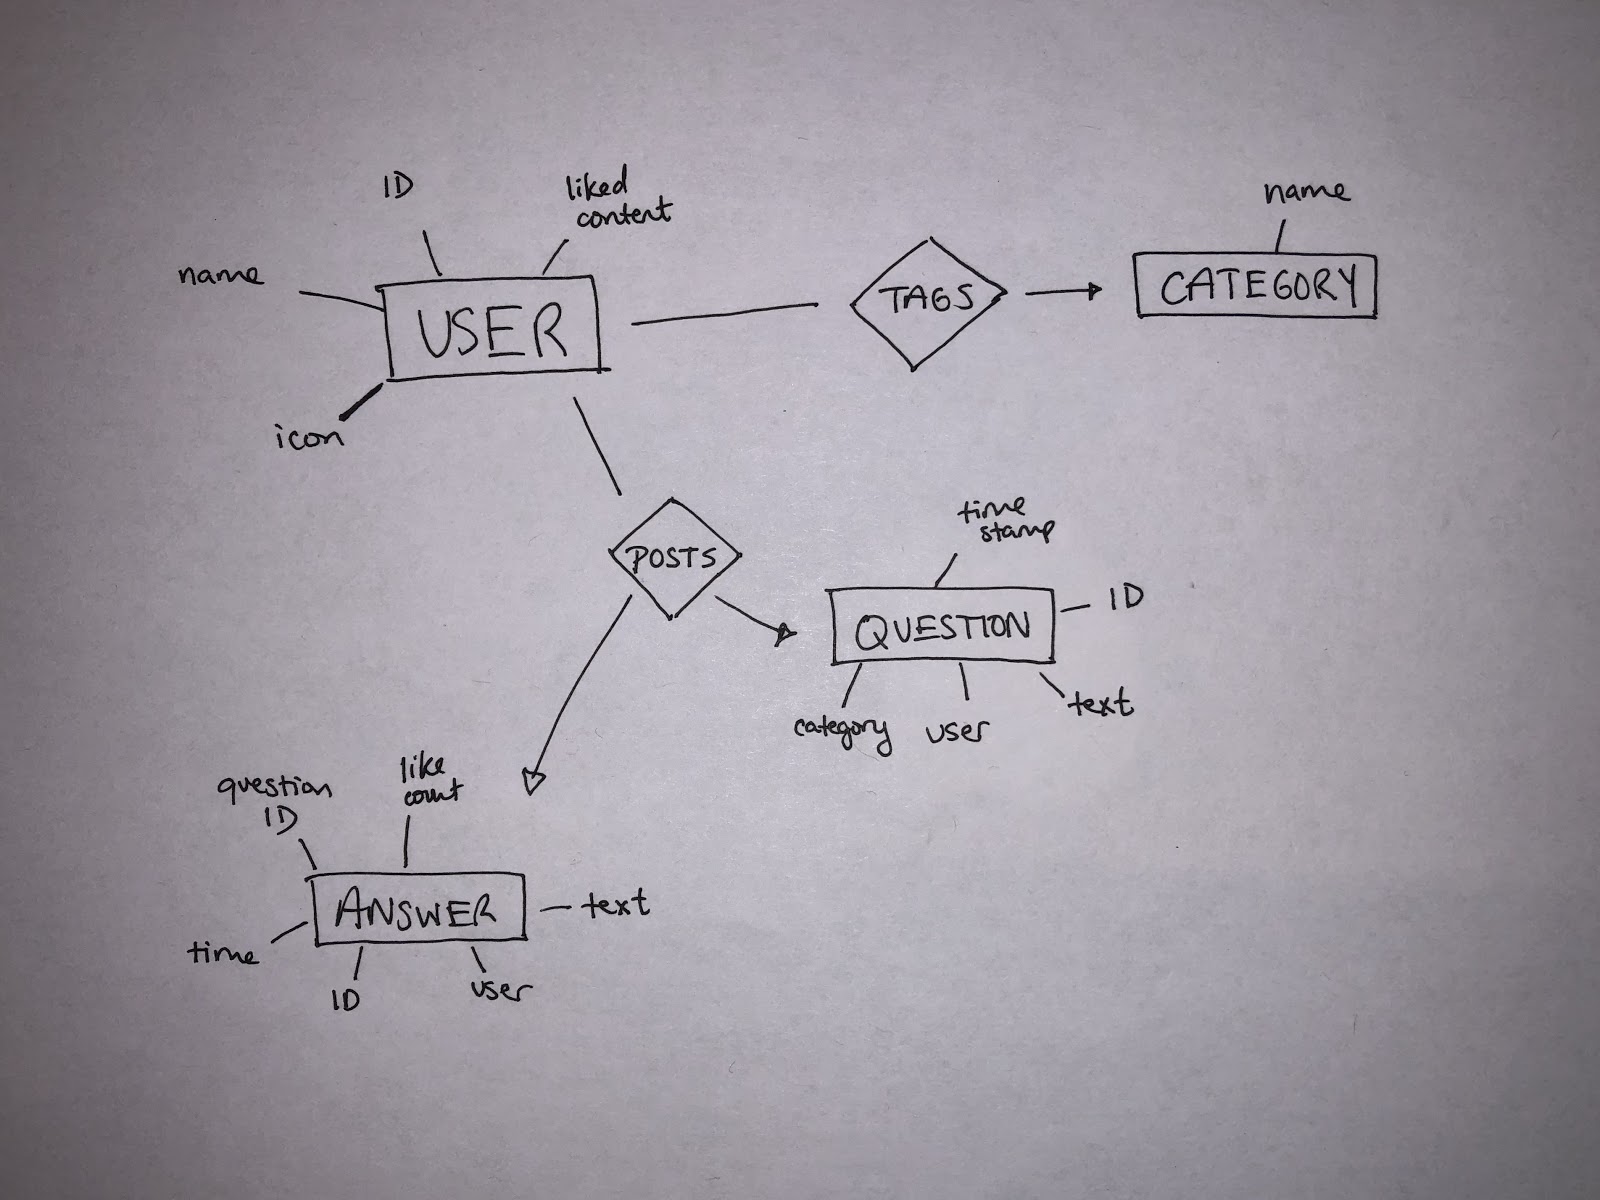 ID
liked
content
name
USER
icon
TAGS
name
CATEGORY
POSTS
time
stamp
QUESTION
ID
category
user
text
question
ID
like
count
ANSWER
text
time
ID
user